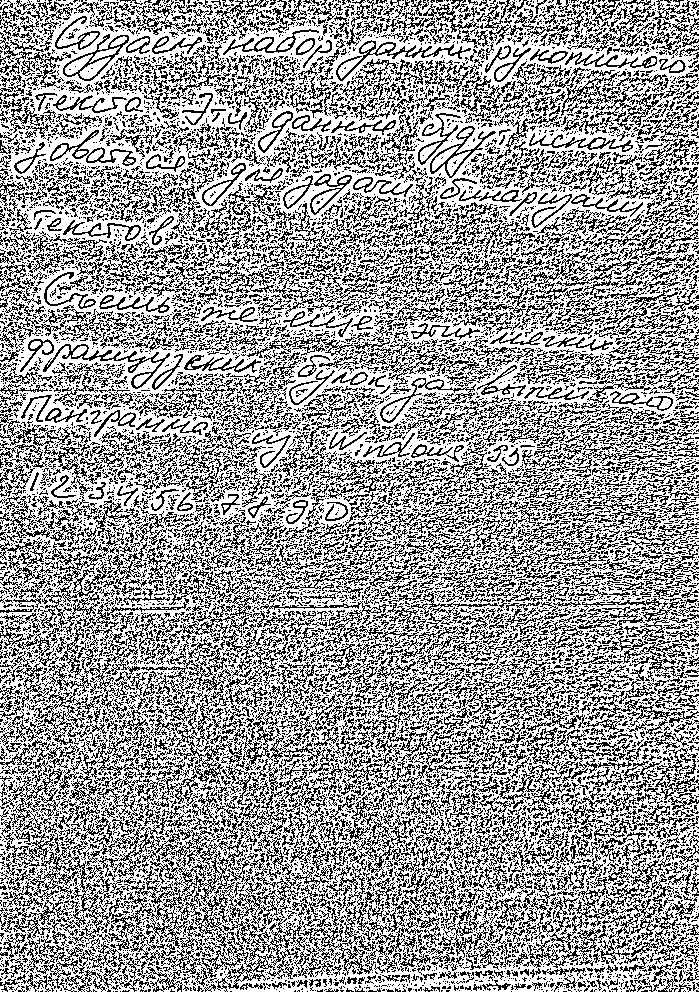 Создаем набор данных рукописного
текста. Эти данные будут исполь-
зоваться для задачи бинаризации
текстов
Съешь же еще этих мягких
французских булок, да выпей чаю
Панграмма из Windows 95
1 2 3 4 5 6 7 8 9 0